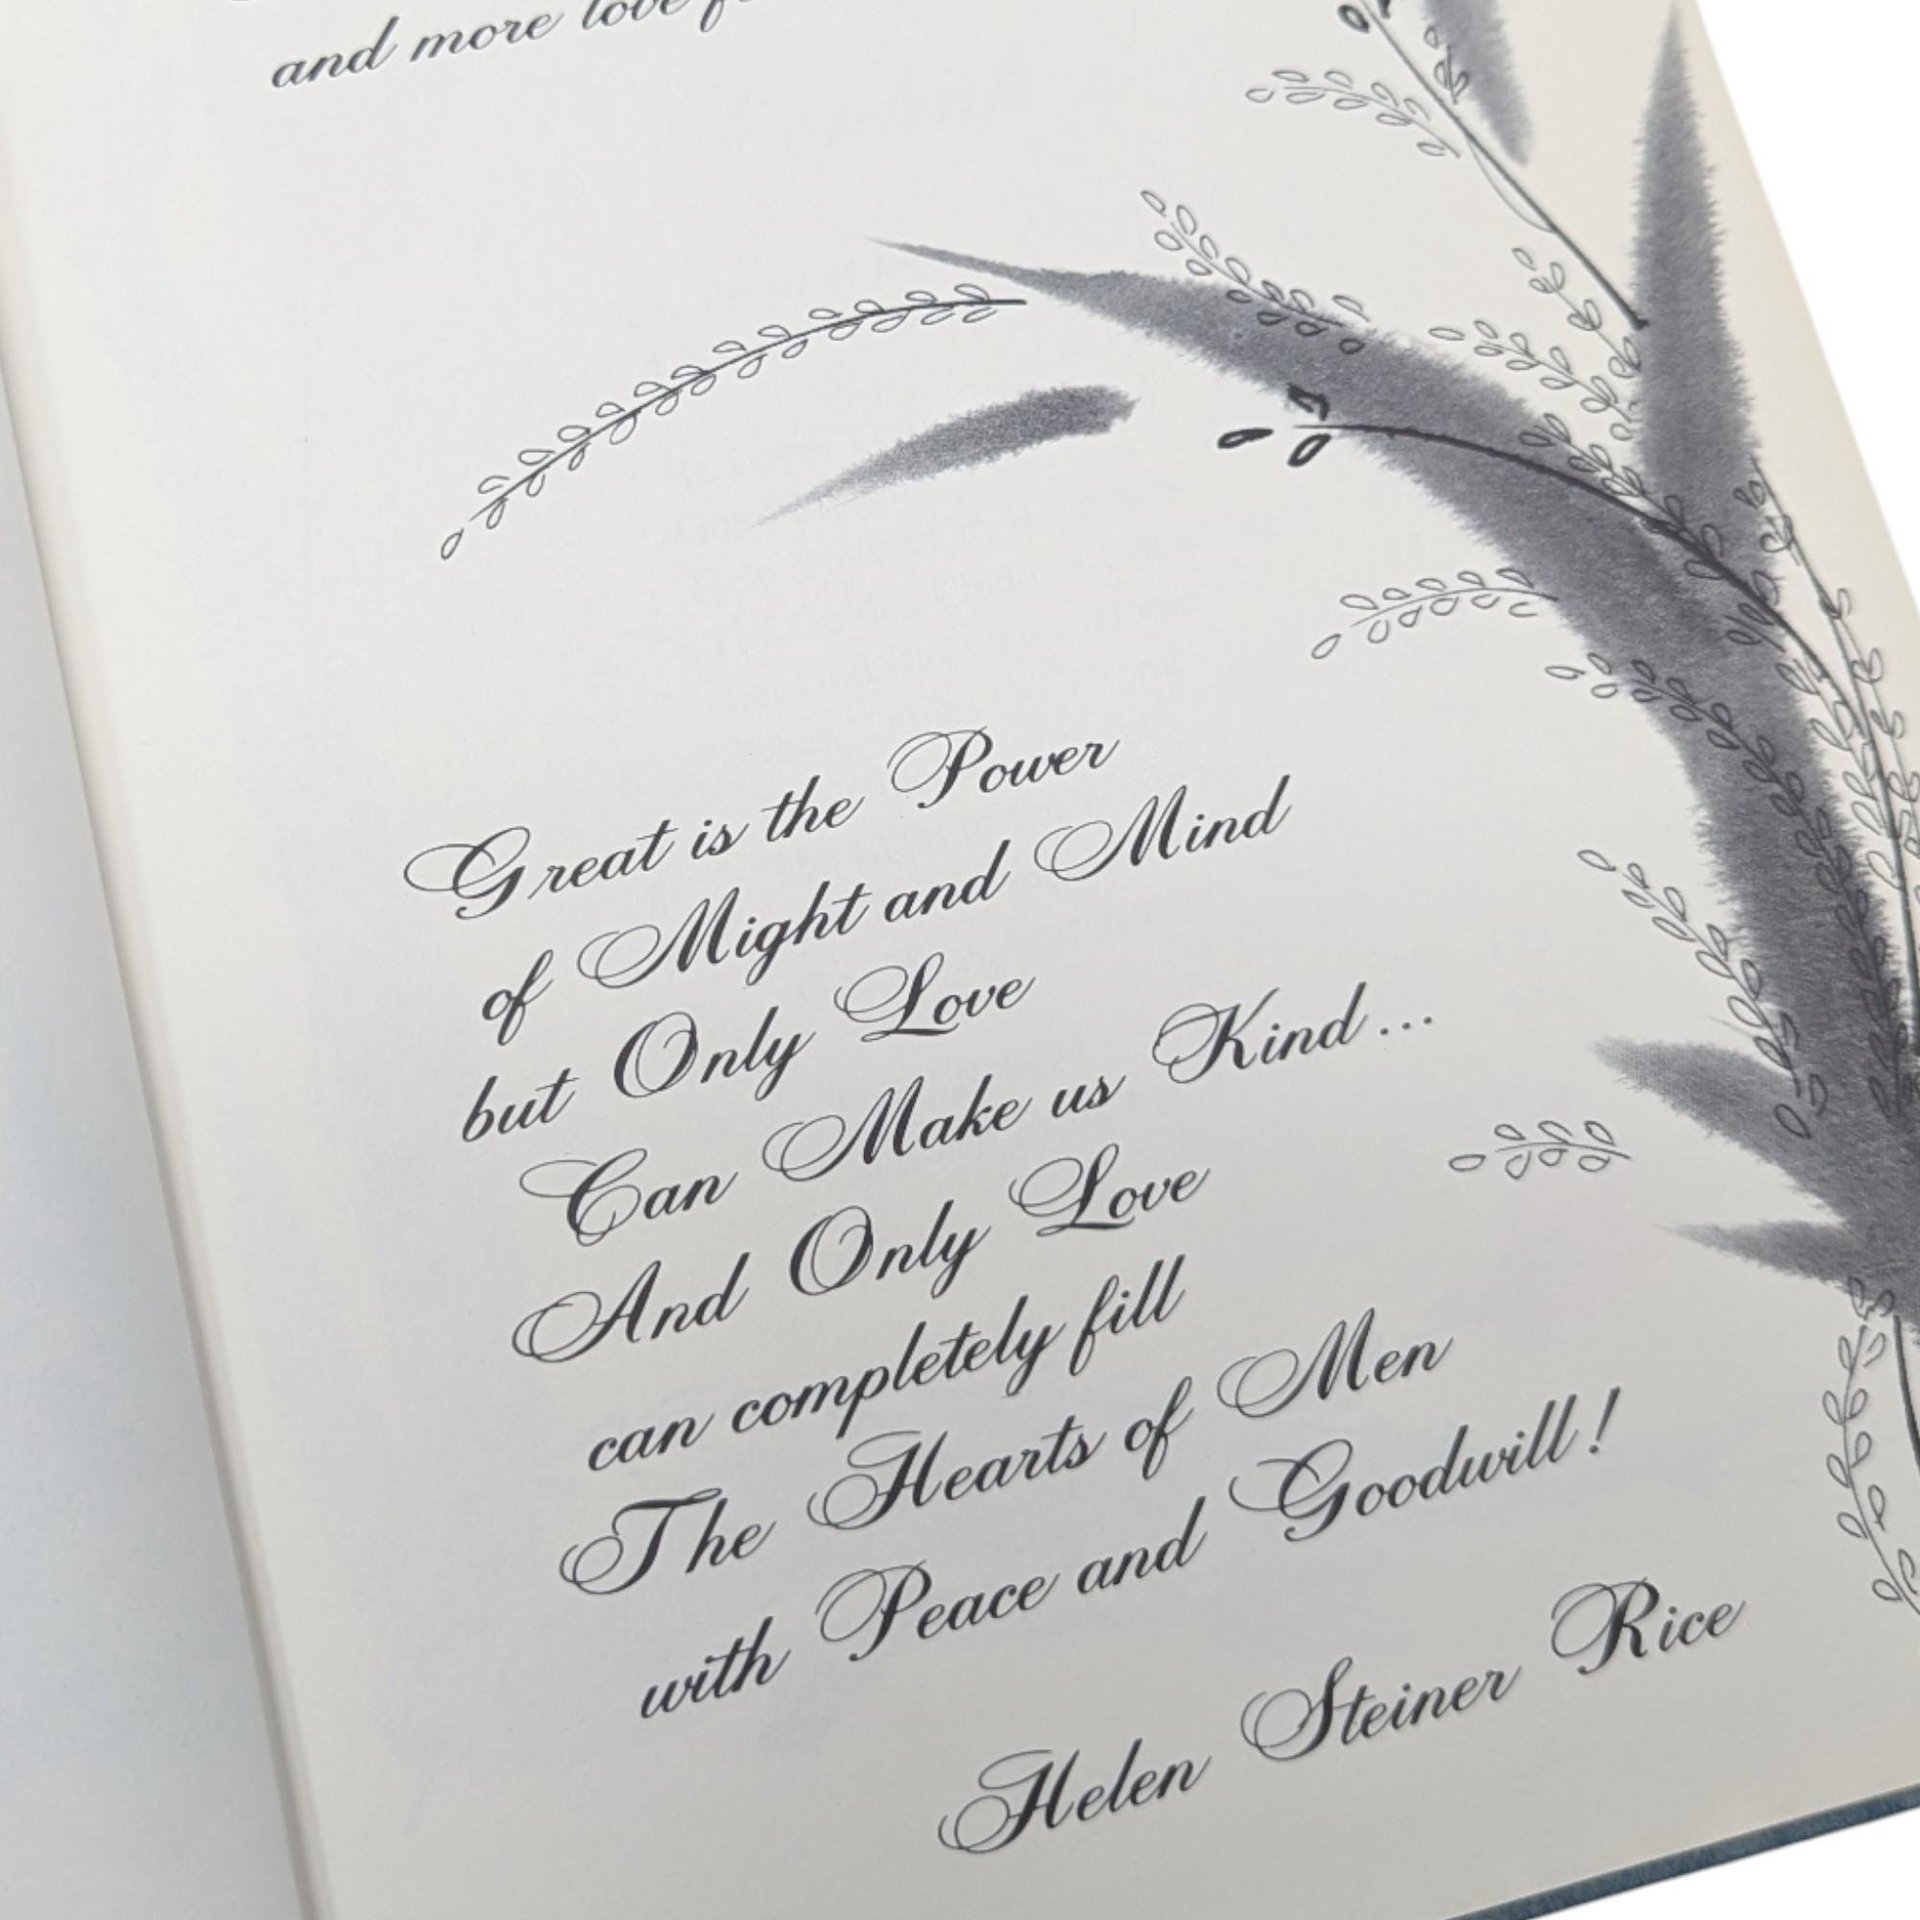 and more love
Great is the Power
of Might and Mind
but Only Love
Can Make us Kind...
And Only Love
can completely fill
The Hearts of Men
with Peace and Goodwill!
Helen Steiner Rice